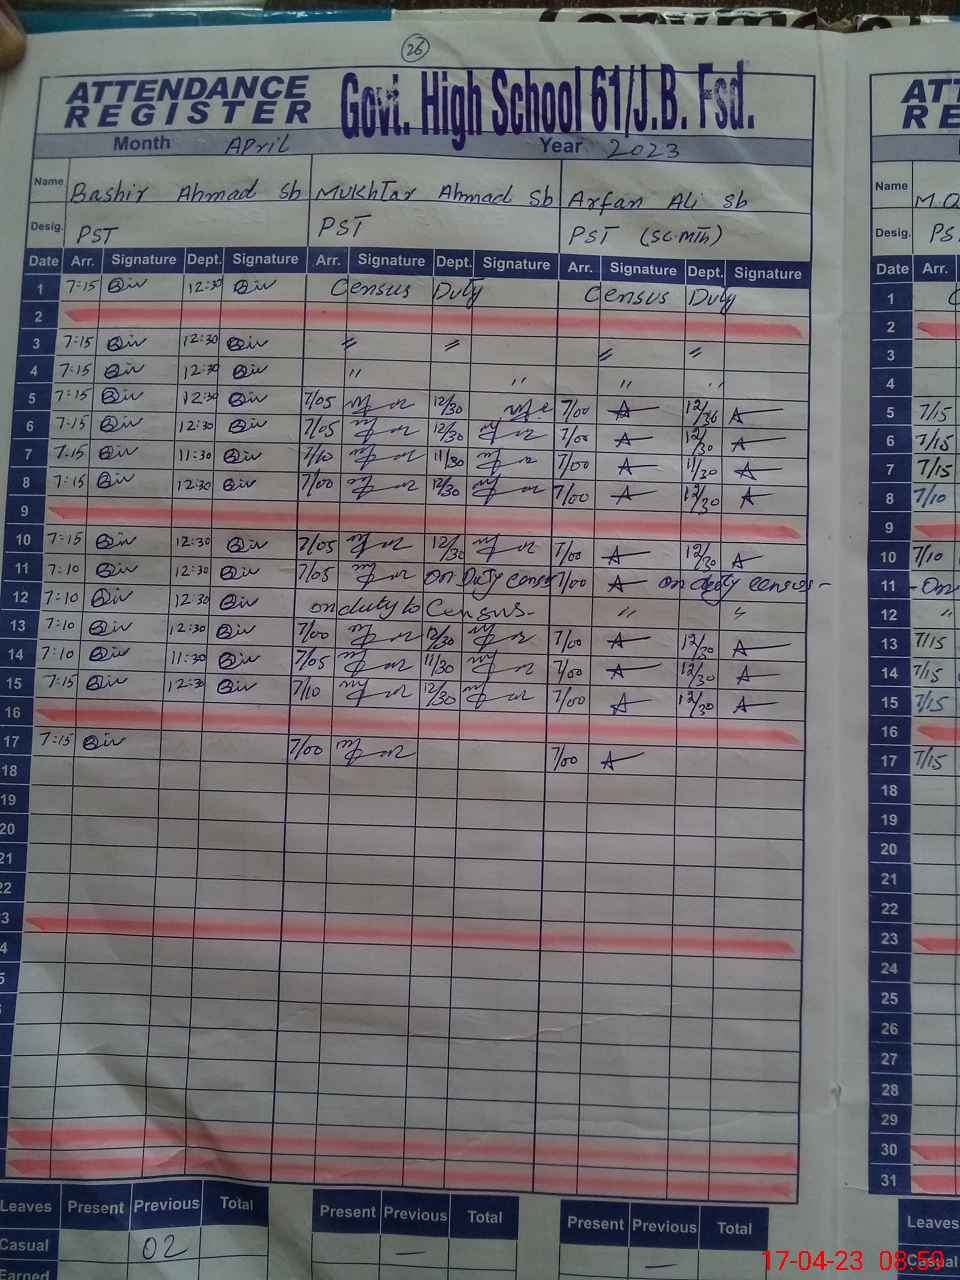 26
ATTENDANCE REGISTER Govt. High School 61/J.B. Fsd.
Month April Year 2023
Name Bashir Ahmad Sb Mukhtar Ahmad Sb Arfan Ali Sb
Desig. PST PST PST (SC.MTh)
Date Arr. Signature Dept. Signature Arr. Signature Dept. Signature Arr. Signature Dept. Signature
1 7:15 12:30 Census Duty Census Duty
2
3 7:15 12:30 〃 〃 〃 〃
4 7:15 12:30 〃 〃 〃 〃
5 7:15 12:30 7/05 12/30 7/00 12/30
6 7:15 12:30 7/05 12/30 7/00 12/30
7 7:15 11:30 7/10 11/30 7/00 11/30
8 7:15 12:30 7/00 12/30 7/00 12/30
9
10 7:15 12:30 7/05 12/30 7/00 12/30
11 7:10 12:30 7/05 on Duty census 7/00 on duty census-
12 7:10 12:30 on duty to Census- 〃 〃
13 7:10 12:30 7/00 12/30 7/00 12/30
14 7:10 11:30 7/05 11/30 7/00 12/30
15 7:15 12:30 7/10 12/30 7/00 12/30
16
17 7:15 7/00 7/00
18
19
20
21
22
3
4
5
Leaves Present Previous Total Present Previous Total Present Previous Total
Casual 02 — —
Earned
ATT
RE
Name M.Q
Desig. PS
Date Arr.
1 C
2
3
4
5 7/15
6 7/15
7 7/15
8 7/10
9
10 7/10
11 -On
12 〃
13 7/15
14 7/15
15 7/15
16
17 7/15
18
19
20
21
22
23
24
25
26
27
28
29
30
31
Leaves
Casual
17-04-23 08:59